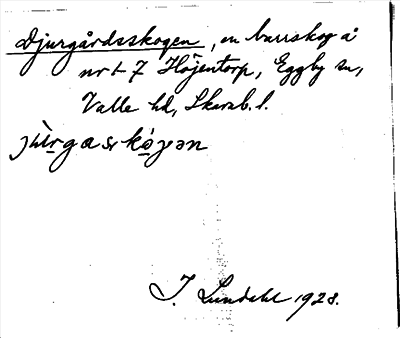 Djurgårdsskogen, en barrskog å
nr 1-7 Höjentorp, Eggby sn,
Valle hd, Skarab. l.
I. Lundahl 1928.